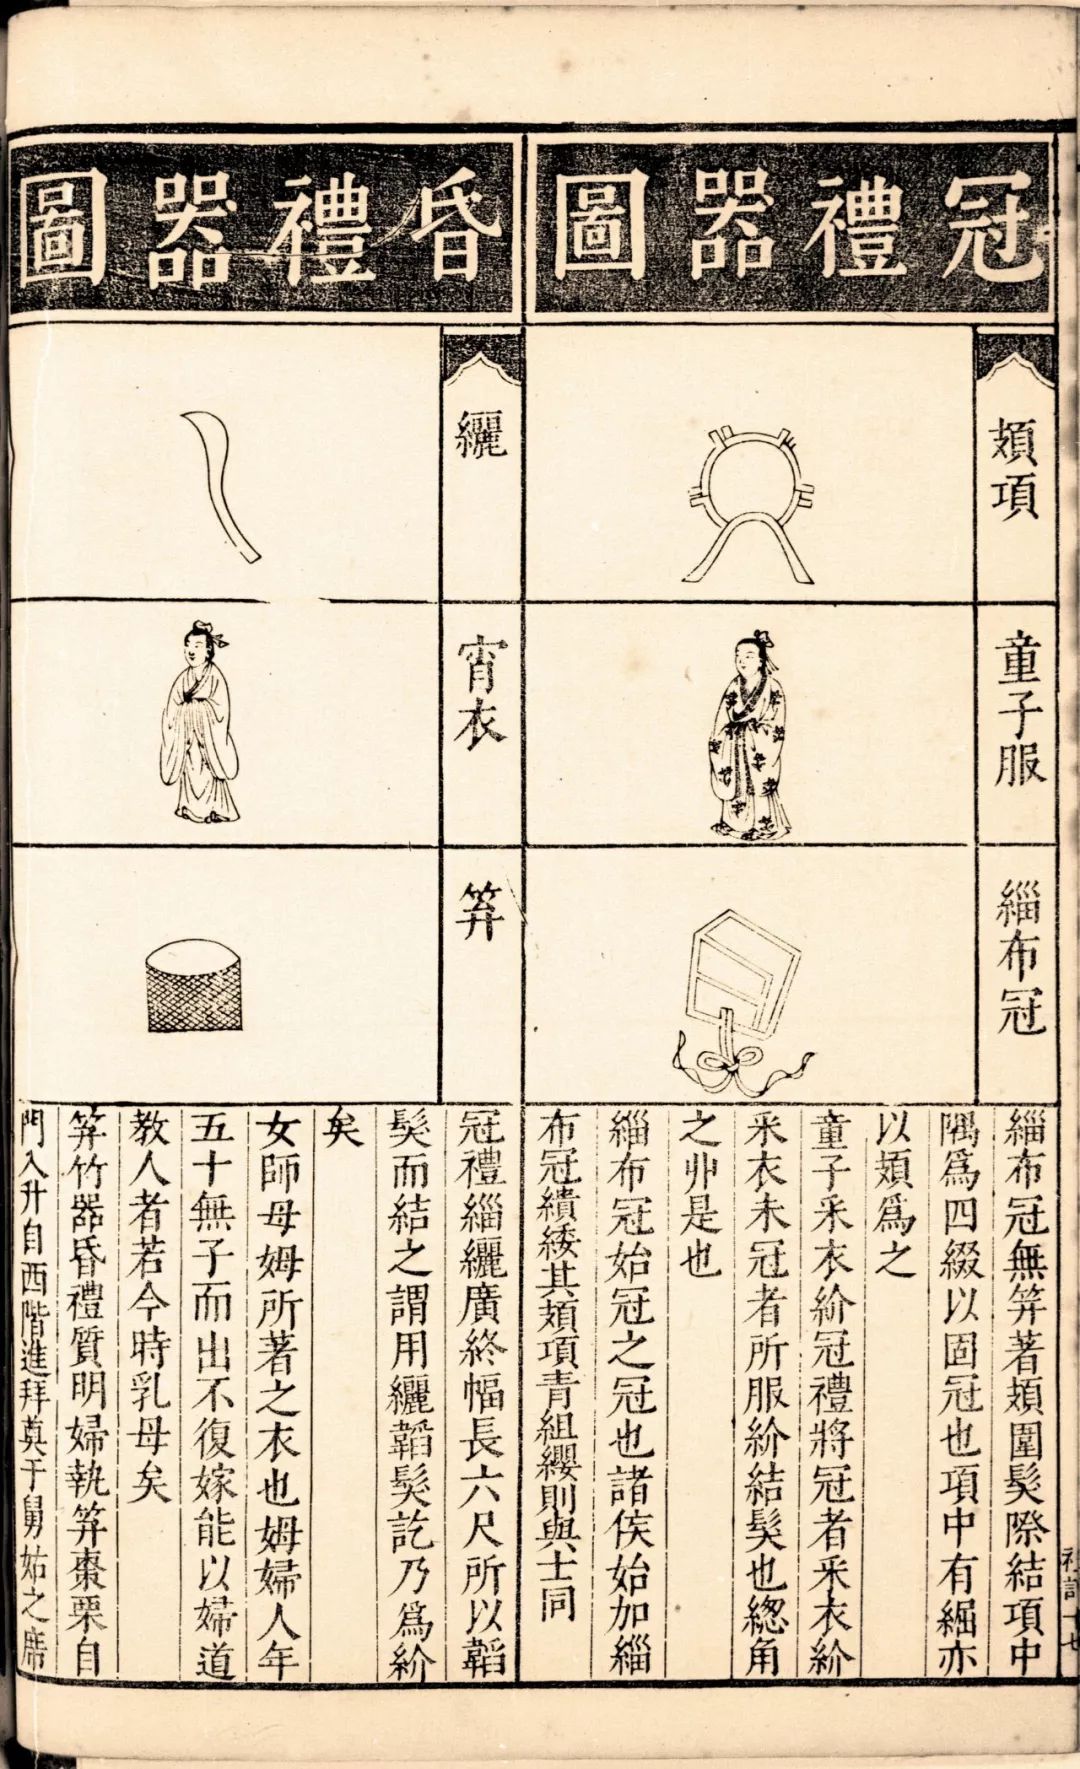 冠禮器圖
頍項
童子服
緇布冠
緇布冠無筓著頍圍髮際結項中
隅爲四綴以固冠也項中有䋎亦
以頍爲之
童子采衣紒冠禮將冠者采衣紒
采衣未冠者所服紒結髮也緫角
之丱是也
緇布冠始冠之冠也諸侯始加緇
布冠繢緌其頍項青組纓則與士同
昏禮器圖
纚
宵衣
笲
冠禮緇纚廣終幅長六尺所以韜
髮而結之謂用纚韜髮訖乃爲紒
矣
女師母姆所著之衣也姆婦人年
五十無子而出不復嫁能以婦道
教人者若今時乳母矣
笲竹器昏禮質明婦執笲棗栗自
門入升自西階進拜奠于舅姑之席